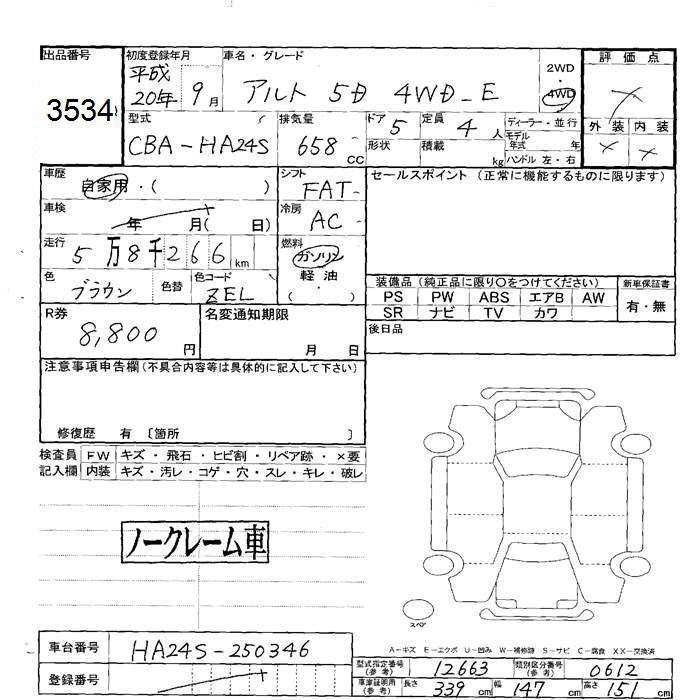 出品番号 初度登録年月 車名・グレード 評価点
3534 平成20年 9月 アルト 5D 4WD-E 2WD・4WD
型式 排気量 ドア 定員 ディーラー・並行 外装 内装
CBA-HA24S 658cc 5 4人 モデル年式 年
形状 積載 kg ハンドル 左・右
車歴 シフト セールスポイント (正常に機能するものに限ります)
自家用・( ) FAT
車検 年 月( 日) 冷房 AC
走行 5万8千266km 燃料 ガソリン・軽油 ( )
色 ブラウン 色替 色コード ZEL
装備品 (純正品に限り○をつけてください) 新車保証書
PS PW ABS エアB AW 有・無
SR ナビ TV カワ
R券 8,800円 名変通知期限 月 日 後日品
注意事項申告欄 (不具合内容等は具体的に記入して下さい)
修復歴 有 〔箇所 〕
検査員記入欄 FW キズ・飛石・ヒビ割・リペア跡・×要
内装 キズ・汚レ・コゲ・穴・スレ・キレ・破レ
ノークレーム車
スペア
A-キズ E-エクボ U-凹み W-補修跡 S-サビ C-腐食 XX-交換済
車台番号 HA24S-250346 型式指定番号(参考) 12663 類別区分番号(参考) 0612
登録番号 車庫証明用(参考) 長さ 339cm 幅 147cm 高さ 151cm